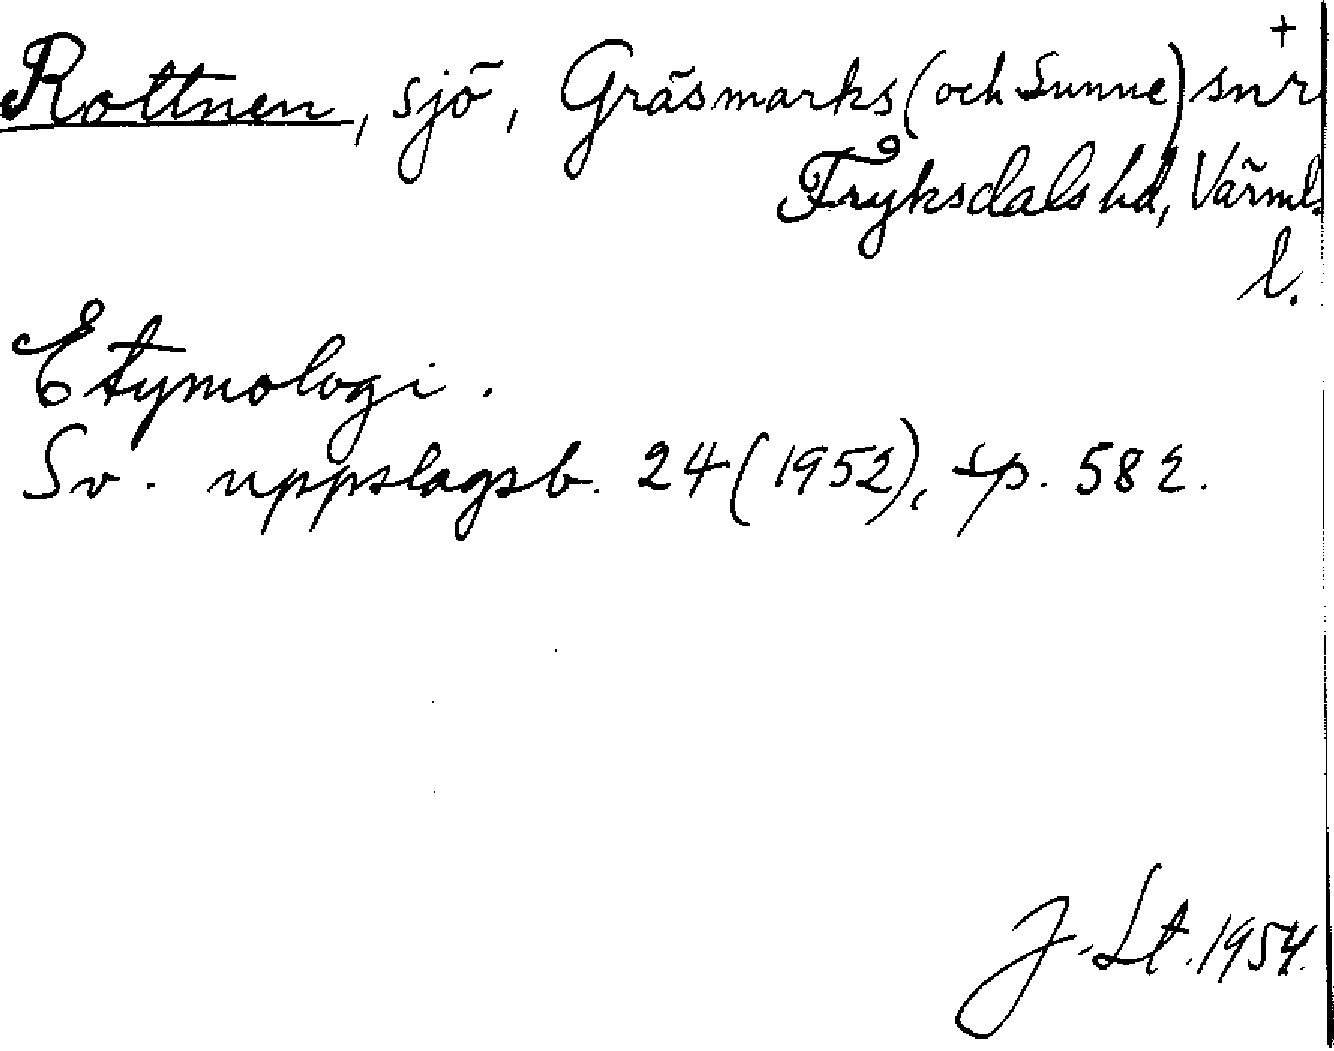 +
Rottnen, sjö, Gräsmarks (och Sunne) snr
Fryksdals hd, Värml.
l.
Etymologi.
Sv. uppslagsb. 24 (1952), sp. 582.
J. Lt. 1954.